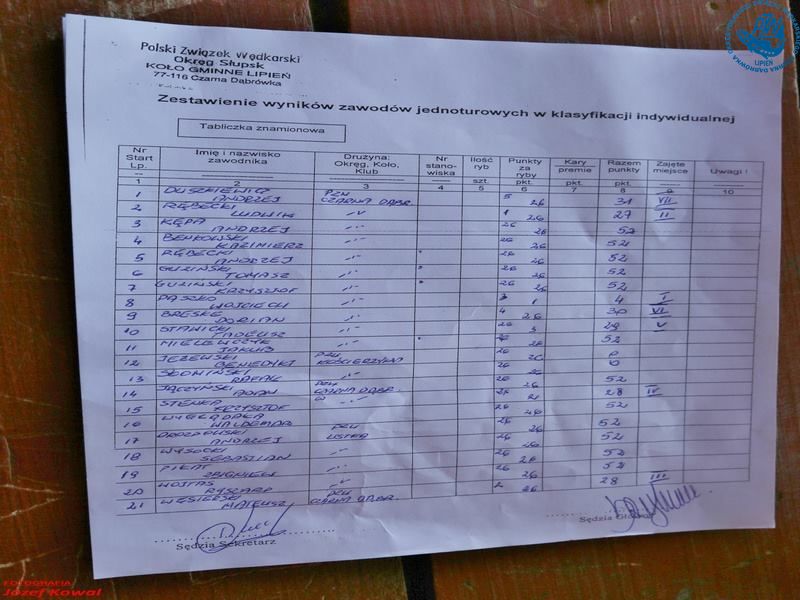 Polski Związek Wędkarski
Okręg Słupsk
KOŁO GMINNE LIPIEŃ
77-116 Czarna Dąbrówka
Zestawienie wyników zawodów jednoturowych w klasyfikacji indywidualnej
Tabliczka znamionowa
Nr Start Lp. Imię i nazwisko zawodnika Drużyna: Okręg, Koło, Klub Nr stanowiska Ilość ryb szt. Punkty za ryby pkt. Kary premie pkt. Razem punkty pkt. Zajęte miejsce Uwagi !
1 2 3 4 5 6 7 8 9 10
1 DUSZKIEWICZ ANDRZEJ PZW CZARNA DĄBR. 5 26 31 VII
2 RĘBECKI LUDWIK 1 26 27 II
3 KĘPA ANDRZEJ 26 26 52
4 BENKOWSKI KAZIMIERZ 26 26 52
5 RĘBECKI ANDRZEJ 26 26 52
6 GUZIŃSKI TOMASZ 26 26 52
7 GUZIŃSKI KRZYSZTOF 26 26 52
8 PASZKO WOJCIECH 3 1 4 I
9 BRESKE DORIAN 4 26 30 VI
10 STAWICKI TADEUSZ 26 3 29 V
11 MIELEWCZYK JAKUB 26 26 52
12 JEŻEWSKI BENEDYKT PZW KOŚCIERZYNA 26
13 SŁOWIŃSKI RAFAŁ 26 26 52
14 JĄCZYŃSKI ADAM PZW CZARNA DĄBR. 26 28 IV
15 STENKA KRZYSZTOF 26 26 52
16 WYGLĄDAŁA WALDEMAR PZW 26 26 52
17 ANDRZEJ USTKA 26 26 52
18 WYSOCKI SEBASTIAN 26 26 52
19 ZBIGNIEW 26 26 52
20 WOJTAS RYSZARD PZW 2 26 28 III
21 WĘSIERSKI MATEUSZ CZARNA DĄBR.
Sędzia Sekretarz
Sędzia Główny
LIPIEŃ
FOTOGRAFIA
Józef Kowal